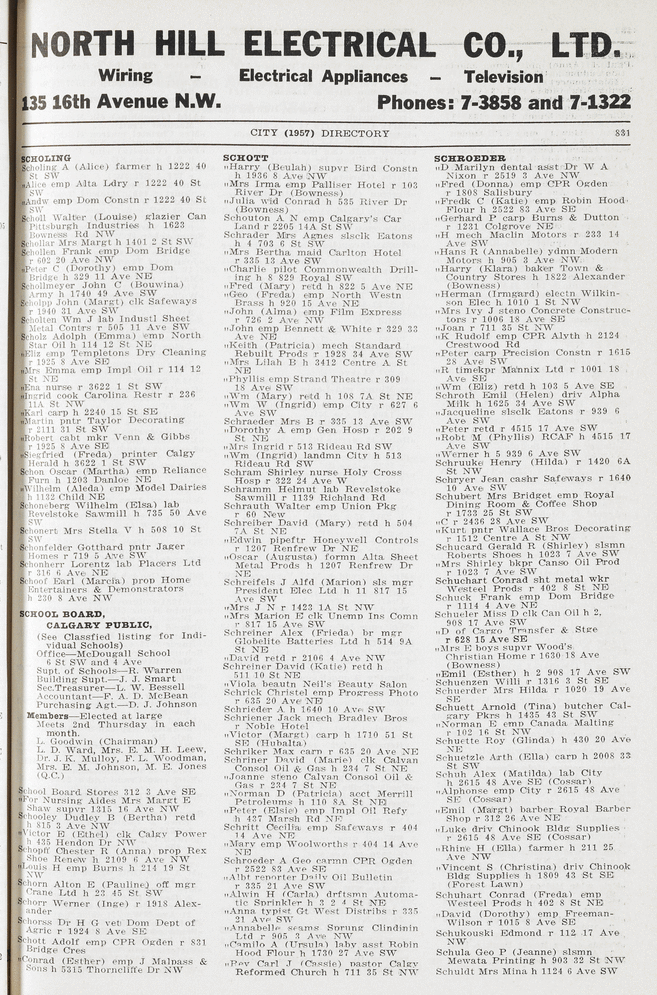 NORTH HILL ELECTRICAL CO., LTD.
Wiring — Electrical Appliances — Television
135 16th Avenue N.W. Phones: 7-3858 and 7-1322
CITY (1957) DIRECTORY 831
SCHOLING
Scholing A (Alice) farmer h 1222 40
St SW
"Alice emp Alta Ldry r 1222 40 St
SW
"Andw emp Dom Constn r 1222 40 St
SW
Scholl Walter (Louise) glazier Can
Pittsburgh Industries h 1623
Bowness Rd NW
Schollar Mrs Margt h 1401 2 St SW
Schollen Frank emp Dom Bridge
r 602 20 Ave NW
"Peter C (Dorothy) emp Dom
Bridge h 329 11 Ave NE
Schollmeyer John C (Bouwina)
Army h 1740 49 Ave SW
Scholpp John (Margt) clk Safeways
r 1940 31 Ave SW
Scholten Wm J lab Industl Sheet
Metal Contrs r 505 11 Ave SW
Scholz Adolph (Emma) emp North
Star Oil h 114 12 St NE
"Eliz emp Templetons Dry Cleaning
r 1925 8 Ave SE
"Mrs Emma emp Impl Oil r 114 12
St NE
"Ena nurse r 3622 1 St SW
"Ingrid cook Carolina Restr r 236
11A St NW
"Karl carp h 2240 15 St SE
"Martin pntr Taylor Decorating
r 2111 31 St SW
"Robert cabt mkr Venn & Gibbs
r 1925 8 Ave SE
"Siegfried (Freda) printer Calgy
Herald h 3622 1 St SW
Schon Oscar (Martha) emp Reliance
Furn h 1203 Danloe NE
"Wilhelm (Aleda) emp Model Dairies
h 1132 Child NE
Schoneberg Wilhelm (Elsa) lab
Revelstoke Sawmill h 735 50 Ave
SW
Schonert Mrs Stella V h 508 10 St
SW
Schonfelder Gotthard pntr Jager
Homes r 719 5 Ave SW
Schonherr Lorentz lab Placers Ltd
r 316 6 Ave NE
Schoof Earl (Marcia) prop Home
Entertainers & Demonstrators
h 230 8 Ave NW
SCHOOL BOARD,
CALGARY PUBLIC,
(See Classfied listing for Indi-
vidual Schools)
Office—McDougall School
6 St SW and 4 Ave
Supt. of Schools—R. Warren
Building Supt.—J. J. Smart
Sec.Treasurer—L. W. Bessell
Accountant—F. A. D. McBean
Purchasing Agt.—D. J. Johnson
Members—Elected at large
Meets 2nd Thursday in each
month.
L. Goodwin (Chairman)
L. D. Ward, Mrs. E. M. H. Leew,
Dr. J. K. Mulloy, F. L. Woodman,
Mrs. E. M. Johnson, M. E. Jones
(Q.C.)
School Board Stores 312 3 Ave SE
"For Nursing Aides Mrs Margt E
Shaw supvr 1315 16 Ave NW
Schooley Dudley B (Bertha) retd
h 815 3 Ave NW
"Victor E (Ethel) clk Calgy Power
h 435 Hendon Dr NW
Schopff Chester R (Anna) prop Rex
Shoe Renew h 2109 6 Ave NW
"Louis H emp Burns h 214 19 St
NW
Schorn Alton E (Pauline) off mgr
Crane Ltd h 23 45 St SW
Schorr Werner (Inge) r 1918 Alex-
ander
Schorss Dr H G vet Dom Dept of
Agric r 1924 8 Ave SE
Schott Adolf emp CPR Ogden r 831
Bridge Cres
"Conrad (Esther) emp J Malpass &
Sons h 5315 Thorncliffe Dr NW
SCHOTT
"Harry (Beulah) supvr Bird Constn
h 1936 8 Ave NW
"Mrs Irma emp Palliser Hotel r 103
River Dr (Bowness)
"Julia wid Conrad h 535 River Dr
(Bowness)
Schouton A N emp Calgary's Car
Land r 2205 14A St SW
Schrader Mrs Agnes slsclk Eatons
h 4 703 6 St SW
"Mrs Bertha maid Carlton Hotel
r 335 13 Ave SW
"Charlie pilot Commonwealth Drill-
ing h 8 829 Royal SW
"Fred (Mary) retd h 822 5 Ave NE
"Geo (Freda) emp North Westn
Brass h 920 15 Ave NE
"John (Alma) emp Film Express
r 726 2 Ave NW
"John emp Bennett & White r 329 33
Ave NE
"Keith (Patricia) mech Standard
Rebuilt Prods r 1928 34 Ave SW
"Mrs Lilah B h 3412 Centre A St
NE
"Phyllis emp Strand Theatre r 309
18 Ave SW
"Wm (Mary) retd h 108 7A St NE
"Wm W (Ingrid) emp City r 627 6
Ave SW
Schraeder Mrs B r 335 13 Ave SW
"Dorothy A emp Gen Hosp r 202 9
St NE
"Mrs Ingrid r 513 Rideau Rd SW
"Wm (Ingrid) landmn City h 513
Rideau Rd SW
Schram Shirley nurse Holy Cross
Hosp r 322 24 Ave W
Schramm Helmut lab Revelstoke
Sawmill r 1139 Richland Rd
Schrauth Walter emp Union Pkg
r 60 New
Schreiber David (Mary) retd h 504
7A St NE
"Edwin pipeftr Honeywell Controls
r 1207 Renfrew Dr NE
"Oscar (Augusta) formn Alta Sheet
Metal Prods h 1207 Renfrew Dr
NE
Schreifels J Alfd (Marion) sls mgr
President Elec Ltd h 11 817 15
Ave SW
"Mrs J N r 1423 1A St NW
"Mrs Marion E clk Unemp Ins Comn
r 817 15 Ave SW
Schreiner Alex (Frieda) br mgr
Globelite Batteries Ltd h 514 9A
St NE
"David retd r 2106 4 Ave NW
Schreiner David (Katie) retd h
511 10 St NE
"Viola beautn Neil's Beauty Salon
Schrick Christel emp Progress Photo
r 635 20 Ave NE
Schrieder A h 1640 10 Ave SW
Schriener Jack mech Bradley Bros
r Noble Hotel
"Victor (Margt) carp h 1710 51 St
SE (Hubalta)
Schriker Max carn r 635 20 Ave NE
Schriner David (Marie) clk Calvan
Consol Oil & Gas h 234 7 St NE
"Joanne steno Calvan Consol Oil &
Gas r 234 7 St NE
"Norman D (Patricia) acct Merrill
Petroleums h 110 8A St NE
"Peter (Elsie) emp Impl Oil Refy
h 437 Marsh Rd NE
Schritt Cecilia emp Safeways r 404
14 Ave NE
"Mary emp Woolworths r 404 14 Ave
NE
Schroeder A Geo carmn CPR Ogden
r 2522 83 Ave SE
"Albt reporter Daily Oil Bulletin
r 335 21 Ave SW
"Alwin H (Carla) drftsmn Automa-
tic Sprinkler h 3 2 4 St NE
"Anna typist Gt West Distribs r 335
21 Ave SW
"Annabelle seams Sprung Clindinin
Ltd r 905 3 Ave NW
"Camilo A (Ursula) laby asst Robin
Hood Flour h 1730 27 Ave SW
"Rev Carl J (Cassie) pastor Calgy
Reformed Church h 711 35 St NW
SCHROEDER
"D Marilyn dental asst Dr W A
Nixon r 2519 3 Ave NW
"Fred (Donna) emp CPR Ogden
r 1808 Salisbury
"Fredk C (Katie) emp Robin Hood
Flour h 2522 83 Ave SE
"Gerhard P carp Burns & Dutton
r 1231 Colgrove NE
"H mech Maclin Motors r 233 14
Ave SW
"Hans R (Annabelle) ydmn Modern
Motors h 905 3 Ave NW
"Harry (Klara) baker Town &
Country Stores h 1822 Alexander
(Bowness)
"Herman (Irmgard) electn Wilkin-
son Elec h 1010 1 St NW
"Mrs Ivy J steno Concrete Construc-
tors r 1006 18 Ave SE
"Joan r 711 35 St NW
"K Rudolf emp CPR Alyth h 2124
Crestwood Rd
"Peter carp Precision Constn r 1615
28 Ave SW
"R timekpr Mannix Ltd r 1001 18
Ave SE
"Wm (Eliz) retd h 103 5 Ave SE
Schroth Emil (Helen) driv Alpha
Milk h 1625 34 Ave SW
"Jacqueline slsclk Eatons r 939 6
Ave SW
"Peter retd r 4515 17 Ave SW
"Robt M (Phyllis) RCAF h 4515 17
Ave SW
"Werner h 5 939 6 Ave SW
Schruuke Henry (Hilda) r 1420 6A
St NW
Schryer Jean cashr Safeways r 1640
10 Ave SW
Schubert Mrs Bridget emp Royal
Dining Room & Coffee Shop
r 1733 25 St SW
"C r 2436 28 Ave SW
"Kurt pntr Wallace Bros Decorating
r 1512 Centre A St NW
Schucard Gerald R (Shirley) slsmn
Roberts Shoes h 1023 7 Ave SW
"Mrs Shirley bkpr Canso Oil Prod
r 1023 7 Ave SW
Schuchart Conrad sht metal wkr
Westeel Prods r 402 8 St NE
Schuck Frank emp Dom Bridge
r 1114 4 Ave NE
Schueler Miss D clk Can Oil h 2,
908 17 Ave SW
"D of Cargo Transfer & Stge
r 628 15 Ave SE
"Mrs E boys supvr Wood's
Christian Home r 1630 18 Ave
(Bowness)
"Emil (Esther) h 2 908 17 Ave SW
Schuenzen Willi r 1316 3 St SE
Schuerder Mrs Hilda r 1020 19 Ave
SE
Schuett Arnold (Tina) butcher Cal-
gary Pkrs h 1435 43 St SW
"Norman E emp Canada Malting
r 102 16 St NW
Schuette Roy (Glinda) h 430 20 Ave
NE
Schuetzle Arth (Ella) carp h 2008 33
St SW
Schuh Alex (Matilda) lab City
h 2615 48 Ave SE (Cossar)
"Alphonse emp City r 2615 48 Ave
SE (Cossar)
"Emil (Margt) barber Royal Barber
Shop r 312 26 Ave NE
"Luke driv Chinook Bldg Supplies
r 2615 48 Ave SE (Cossar)
"Rhine H (Ella) farmer h 211 25
Ave NW
"Vincent S (Christina) driv Chinook
Bldg Supplies h 1809 43 St SE
(Forest Lawn)
Schuhart Conrad (Freda) emp
Westeel Prods h 402 8 St NE
"David (Dorothy) emp Freeman-
Wilson r 1015 8 Ave SE
Schukouski Edmond r 112 17 Ave
NW
Schula Geo P (Jeanne) slsmn
Mewata Printing h 903 32 St NW
Schuldt Mrs Mina h 1124 6 Ave SW